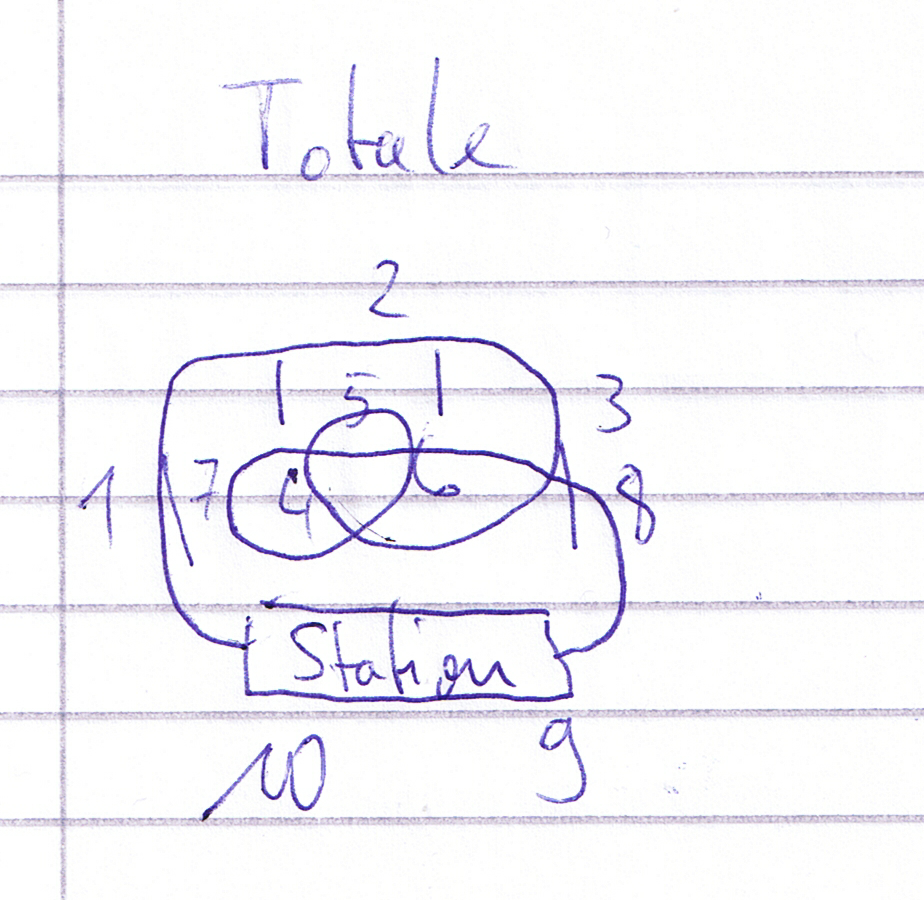 Totale
2
5 3
1 7 4 6 8
Station
10 9